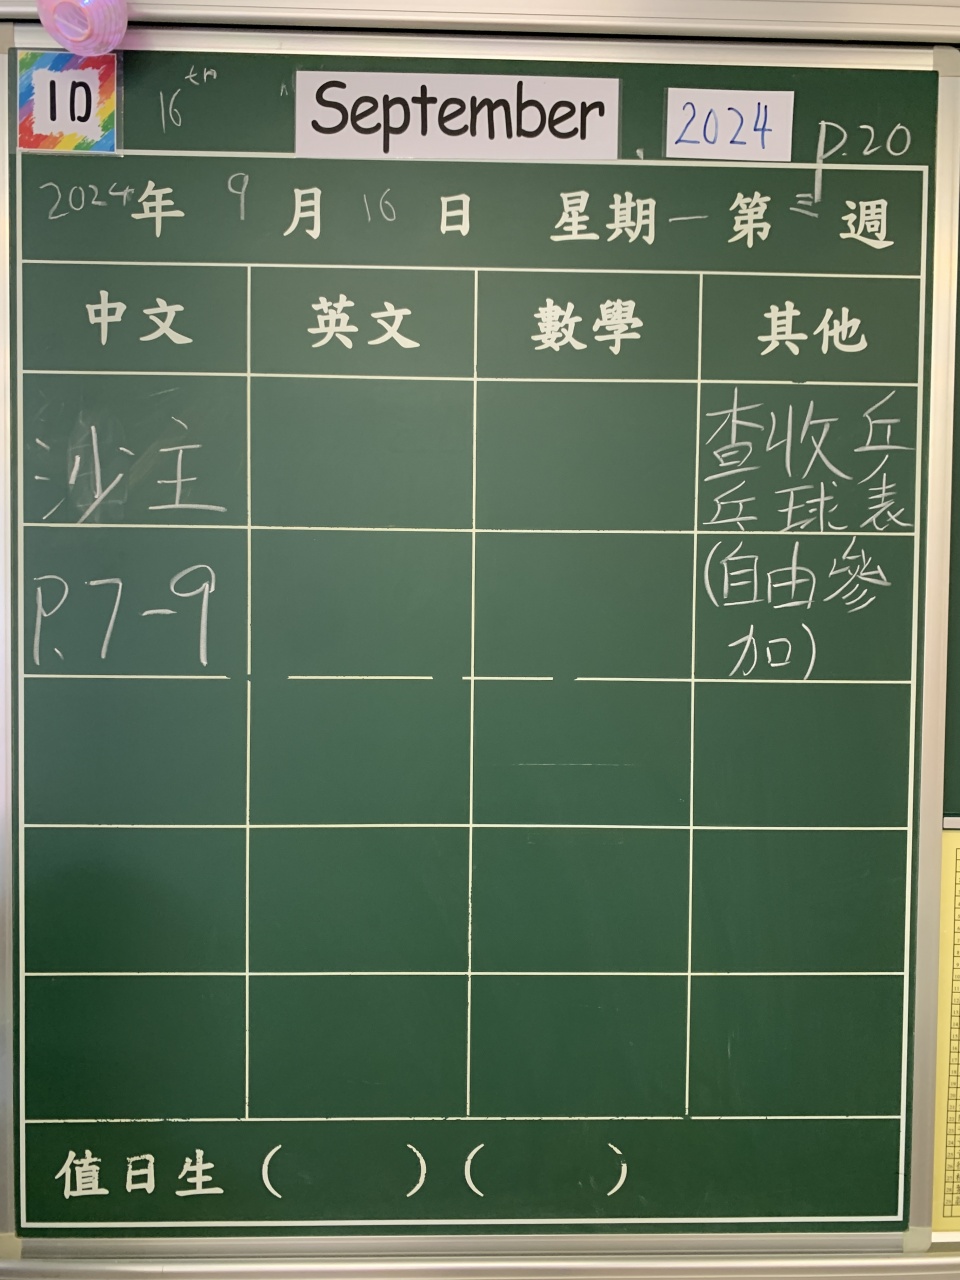 1D 16th September 2024 p.20
2024年 9月 16日 星期一 第三週
中文 英文 數學 其他
沙主
查收乒
乓球表
P.7-9
(自由參
加)
值日生 ( ) ( )